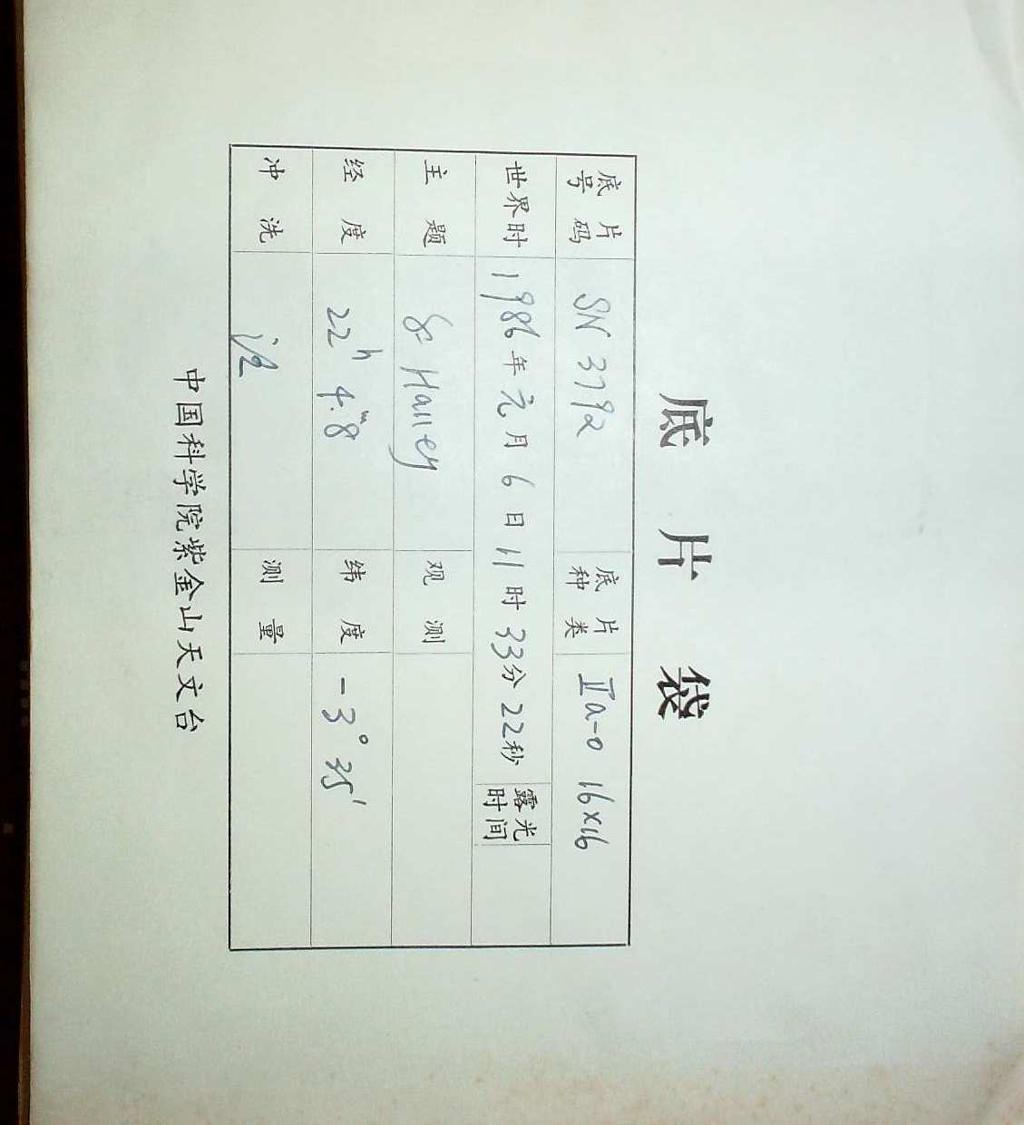 底片袋
底片号码 SN 3792 底片种类 IIa-0 16×16
世界时 1986年元月6日11时33分22秒 露光时间
主题 Halley 观测
经度 22h 4.m8 纬度 -3° 35'
冲洗 测量
中国科学院紫金山天文台